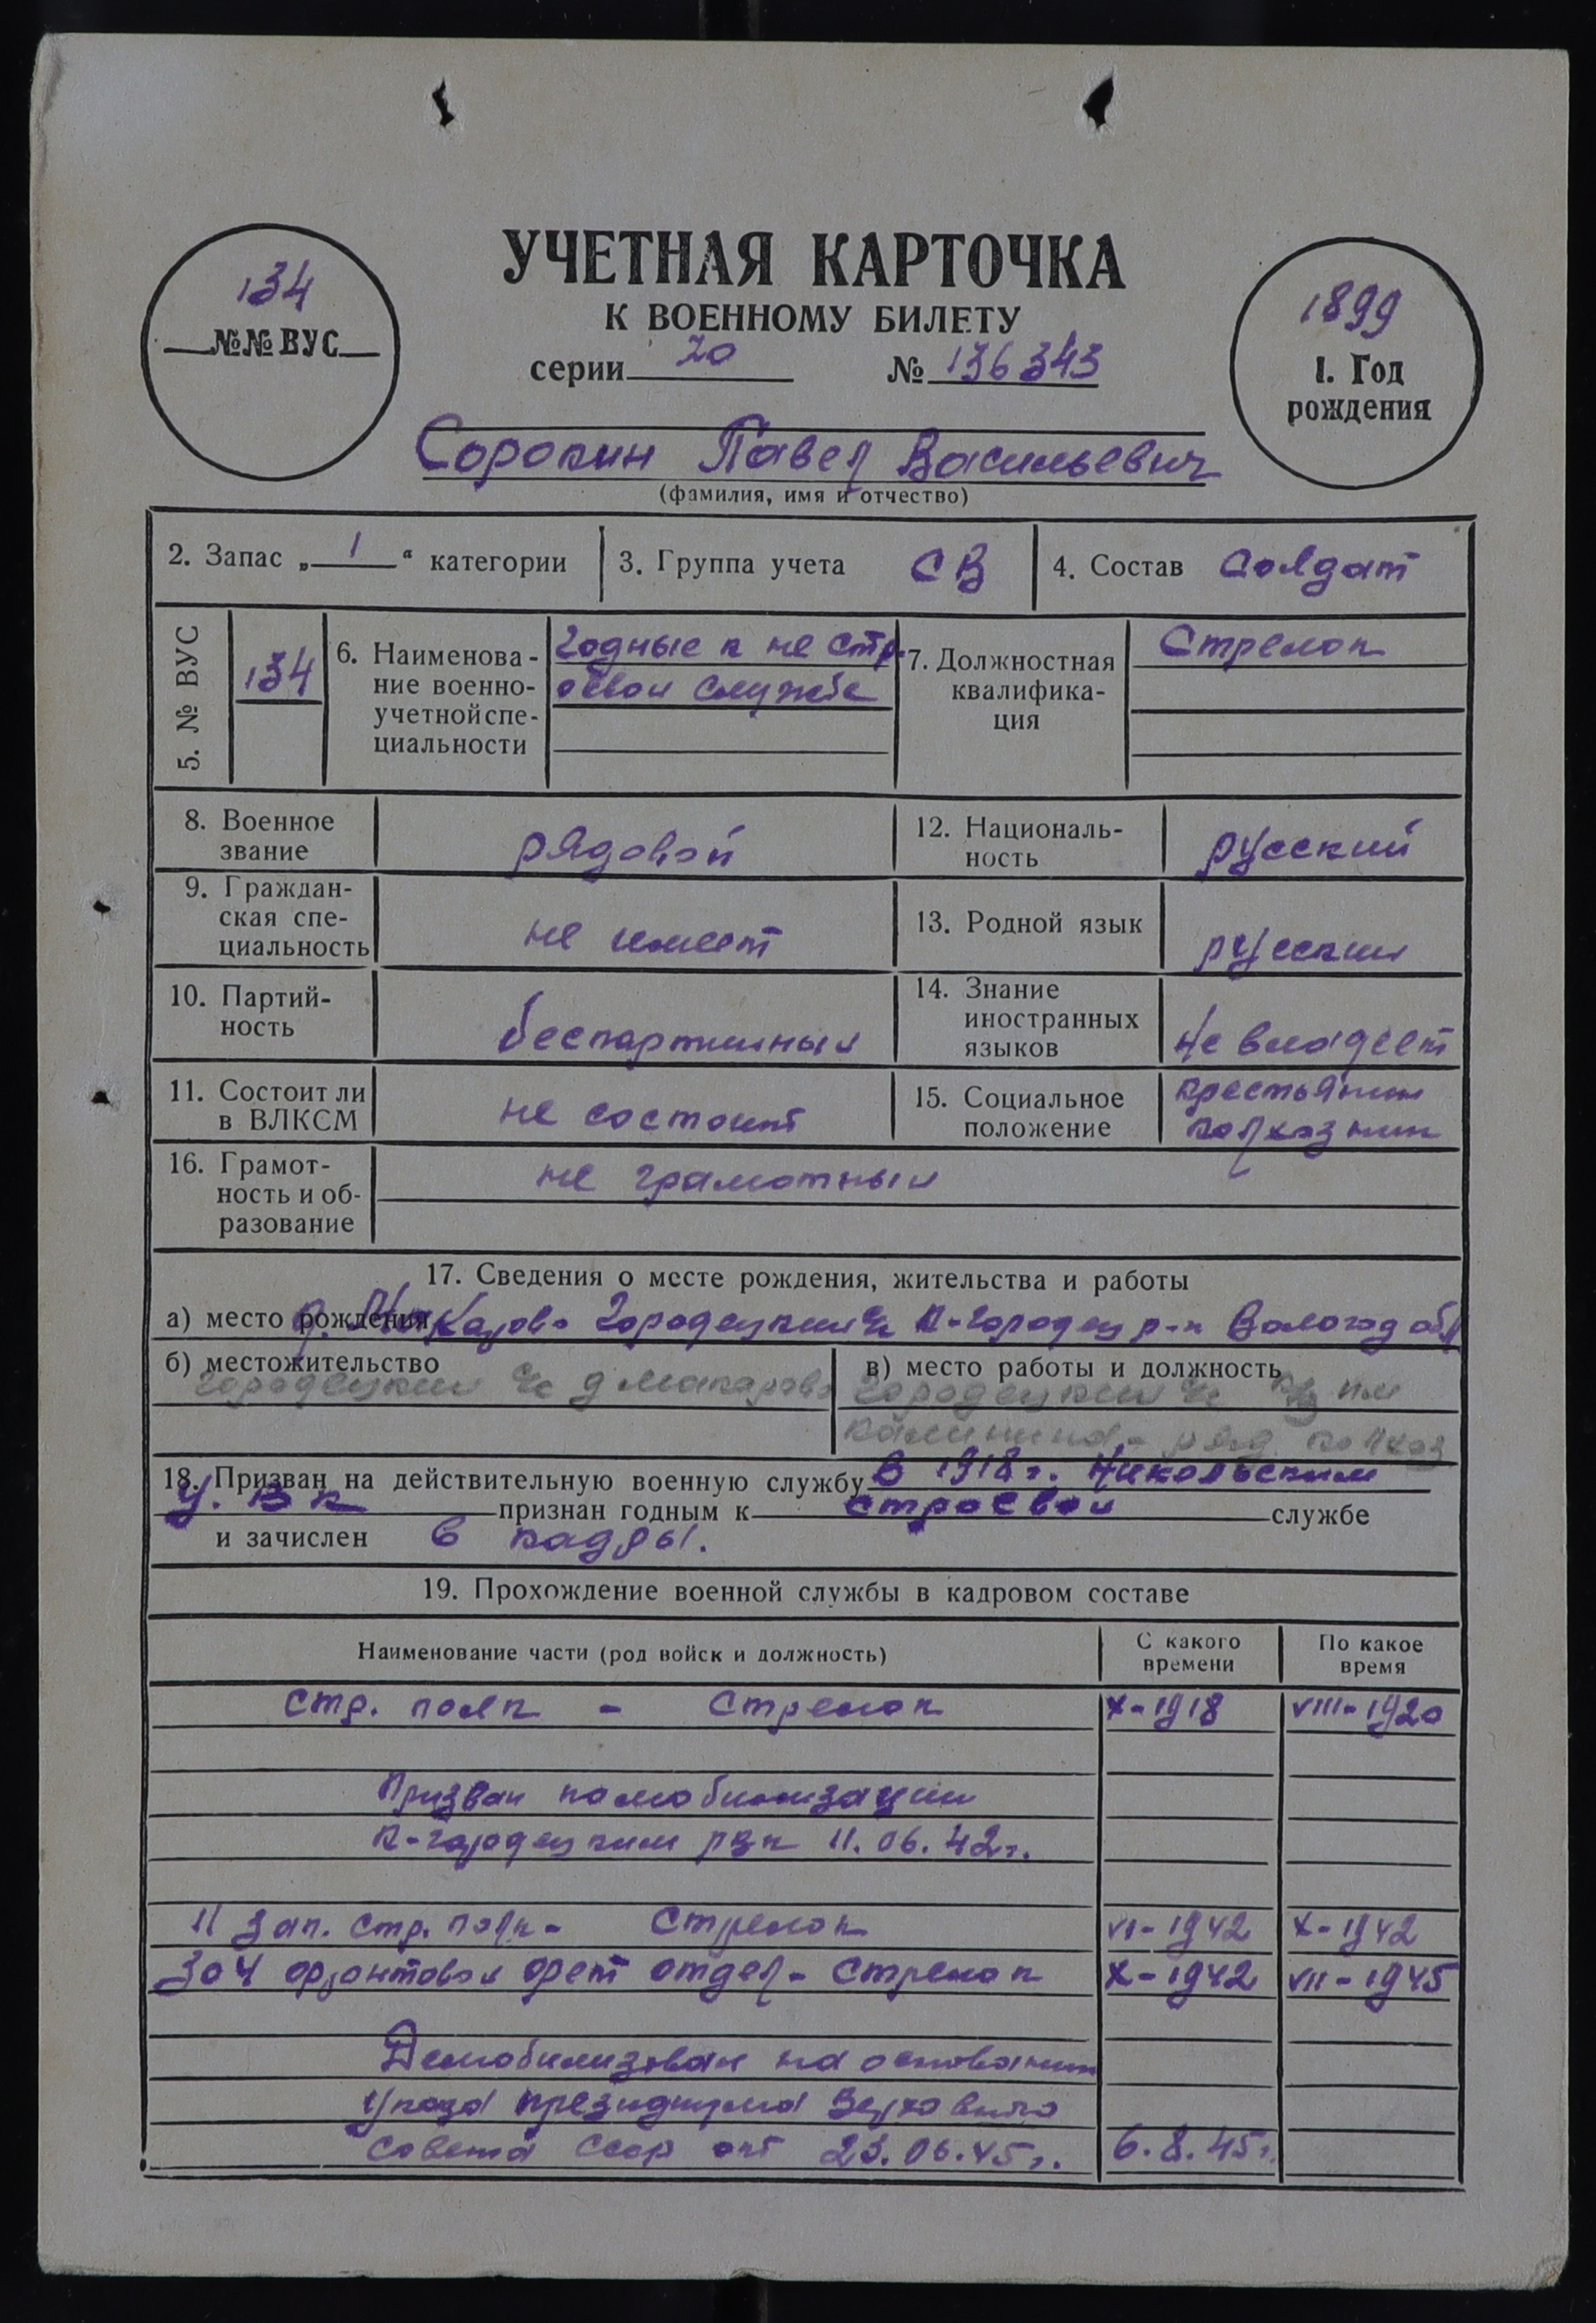 134
№№ ВУС
УЧЕТНАЯ КАРТОЧКА
К ВОЕННОМУ БИЛЕТУ
серии 20 № 136343
1899
1. Год
рождения
Сорокин Павел Васильевич
(фамилия, имя и отчество)
2. Запас „ 1 “ категории
3. Группа учета СВ
4. Состав Солдат
5. № ВУС
134
6. Наименова-
ние военно-
учетной спе-
циальности
годные к не стр
оевои службе
7. Должностная
квалифика-
ция
Стрелок
8. Военное
звание
рядовой
12. Националь-
ность
русский
9. Граждан-
ская спе-
циальность
не имеет
13. Родной язык
русскии
10. Партий-
ность
беспартииныи
14. Знание
иностранных
языков
не владеет
11. Состоит ли
в ВЛКСМ
не состоит
15. Социальное
положение
крестьянин
колхозник
16. Грамот-
ность и об-
разование
не грамотныи
17. Сведения о месте рождения, жительства и работы
а) место рождения д. Макарово Городецкии с/с К-Городец р-н Волог од обл
б) местожительство
Городецкии с/с д Макарово
в) место работы и должность
Городецкии с/с к/з им
Калинина - ряд колхоз
18. Призван на действительную военную службу в 1918 г. Никольским
У. В к признан годным к строевои службе
и зачислен в кадры.
19. Прохождение военной службы в кадровом составе
Наименование части (род войск и должность)
С какого
времени
По какое
время
Стр. полк - Стрелок X-1918 VIII-1920
Призван по мобилизации
К-Городецким рвк 11.06.42г.
11 зап. стр. полк - Стрелок VI-1942 X-1942
304 фронтовои фет отдел - Стрелок X-1942 VII-1945
Демобилизован на основании
Указа президиума Верховного
Совета ссср от 23.06.45г. 6.8.45г.